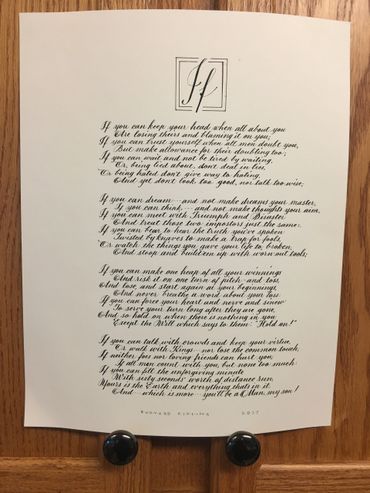 If
If you can keep your head when all about you
Are losing theirs and blaming it on you;
If you can trust yourself when all men doubt you,
But make allowance for their doubting too;
If you can wait and not be tired by waiting,
Or, being lied about, don't deal in lies,
Or being hated don't give way to hating,
And yet don't look too good, nor talk too wise;
If you can dream—and not make dreams your master,
If you can think—and not make thoughts your aim,
If you can meet with Triumph and Disaster
And treat those two impostors just the same:
If you can bear to hear the truth you've spoken
Twisted by knaves to make a trap for fools,
Or watch the things you gave your life to, broken,
And stoop and build'em up with worn-out tools;
If you can make one heap of all your winnings
And risk it on one turn of pitch-and-toss,
And lose, and start again at your beginnings,
And never breathe a word about your loss:
If you can force your heart and nerve and sinew
To serve your turn long after they are gone,
And so hold on when there is nothing in you
Except the Will which says to them: "Hold on!"
If you can talk with crowds and keep your virtue,
Or walk with Kings—nor lose the common touch,
If neither foes nor loving friends can hurt you,
If all men count with you, but none too much:
If you can fill the unforgiving minute
With sixty seconds' worth of distance run
Yours is the Earth and everything that's in it,
And—which is more—you'll be a Man, my son!
RUDYARD KIPLING